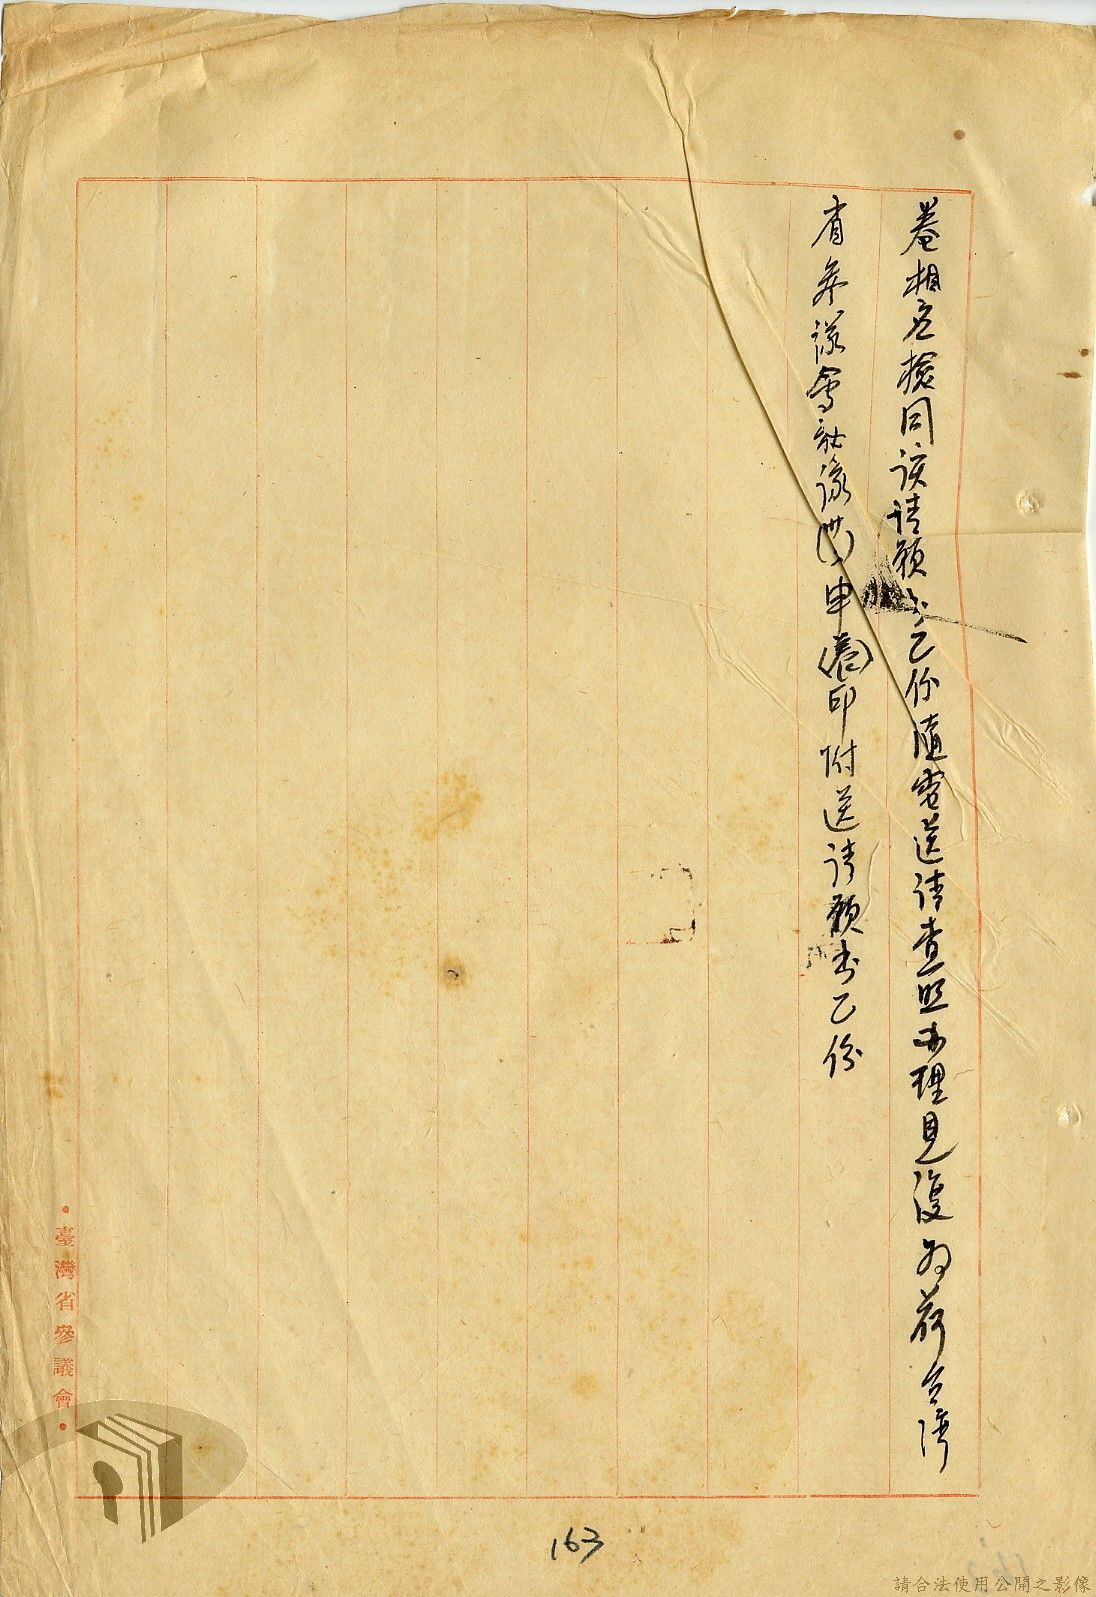 卷相應檢同該請願書乙份隨電送請查照办理見復为荷台湾
省參議會社議(卅)申(養)印附送請願书乙份
•臺灣省參議會•
163
請合法使用公開之影像